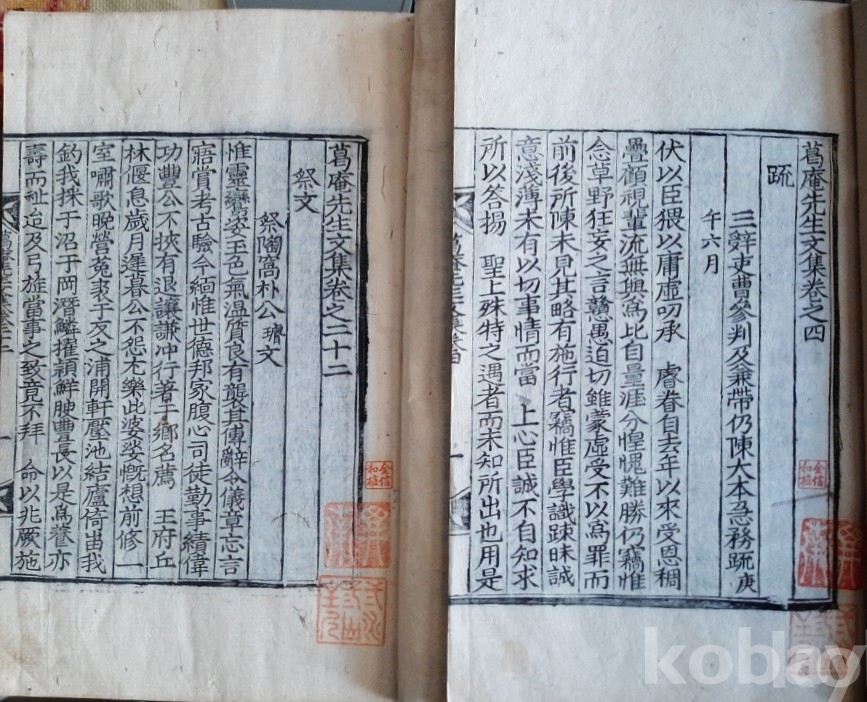 葛庵先生文集卷之四
疏
三辭吏曹參判及兼帶仍陳大本急務疏庚
午六月
伏以臣猥以庸虛叨承 睿眷自去年以來受恩稠
疊顧視輩流無與爲比自量涯分惶愧難勝仍竊惟
念草野狂妄之言戇愚迫切雖蒙虛受不以爲罪而
前後所陳未見其略有施行者竊惟臣學識疎昧誠
意淺薄未有以切事情而當 上心臣誠不自知求
所以答揚 聖上殊特之遇者而未知所出也用是
葛庵先生文集卷之二十二
祭文
祭陶窩朴公 文
惟靈 姿玉色氣溫質良有龔 傳辭令儀章忘言
寤賞考古驗今緬惟世德邦家腹心司徒勤事績偉
功豐公不挾有退讓謙冲行著于鄕名薦 王府丘
林偃息歲月遲暮公不怨尤樂此婆娑慨想前修一
室嘯歌晚營菟裘于 之浦開軒壓池結廬倚 我
釣我採于沼于岡潛鱗擢穎鮮腴豊長以是爲養亦
壽而祉迨及弓旌當事之致竟不拜 命以兆厥施
金信
和植
kobay